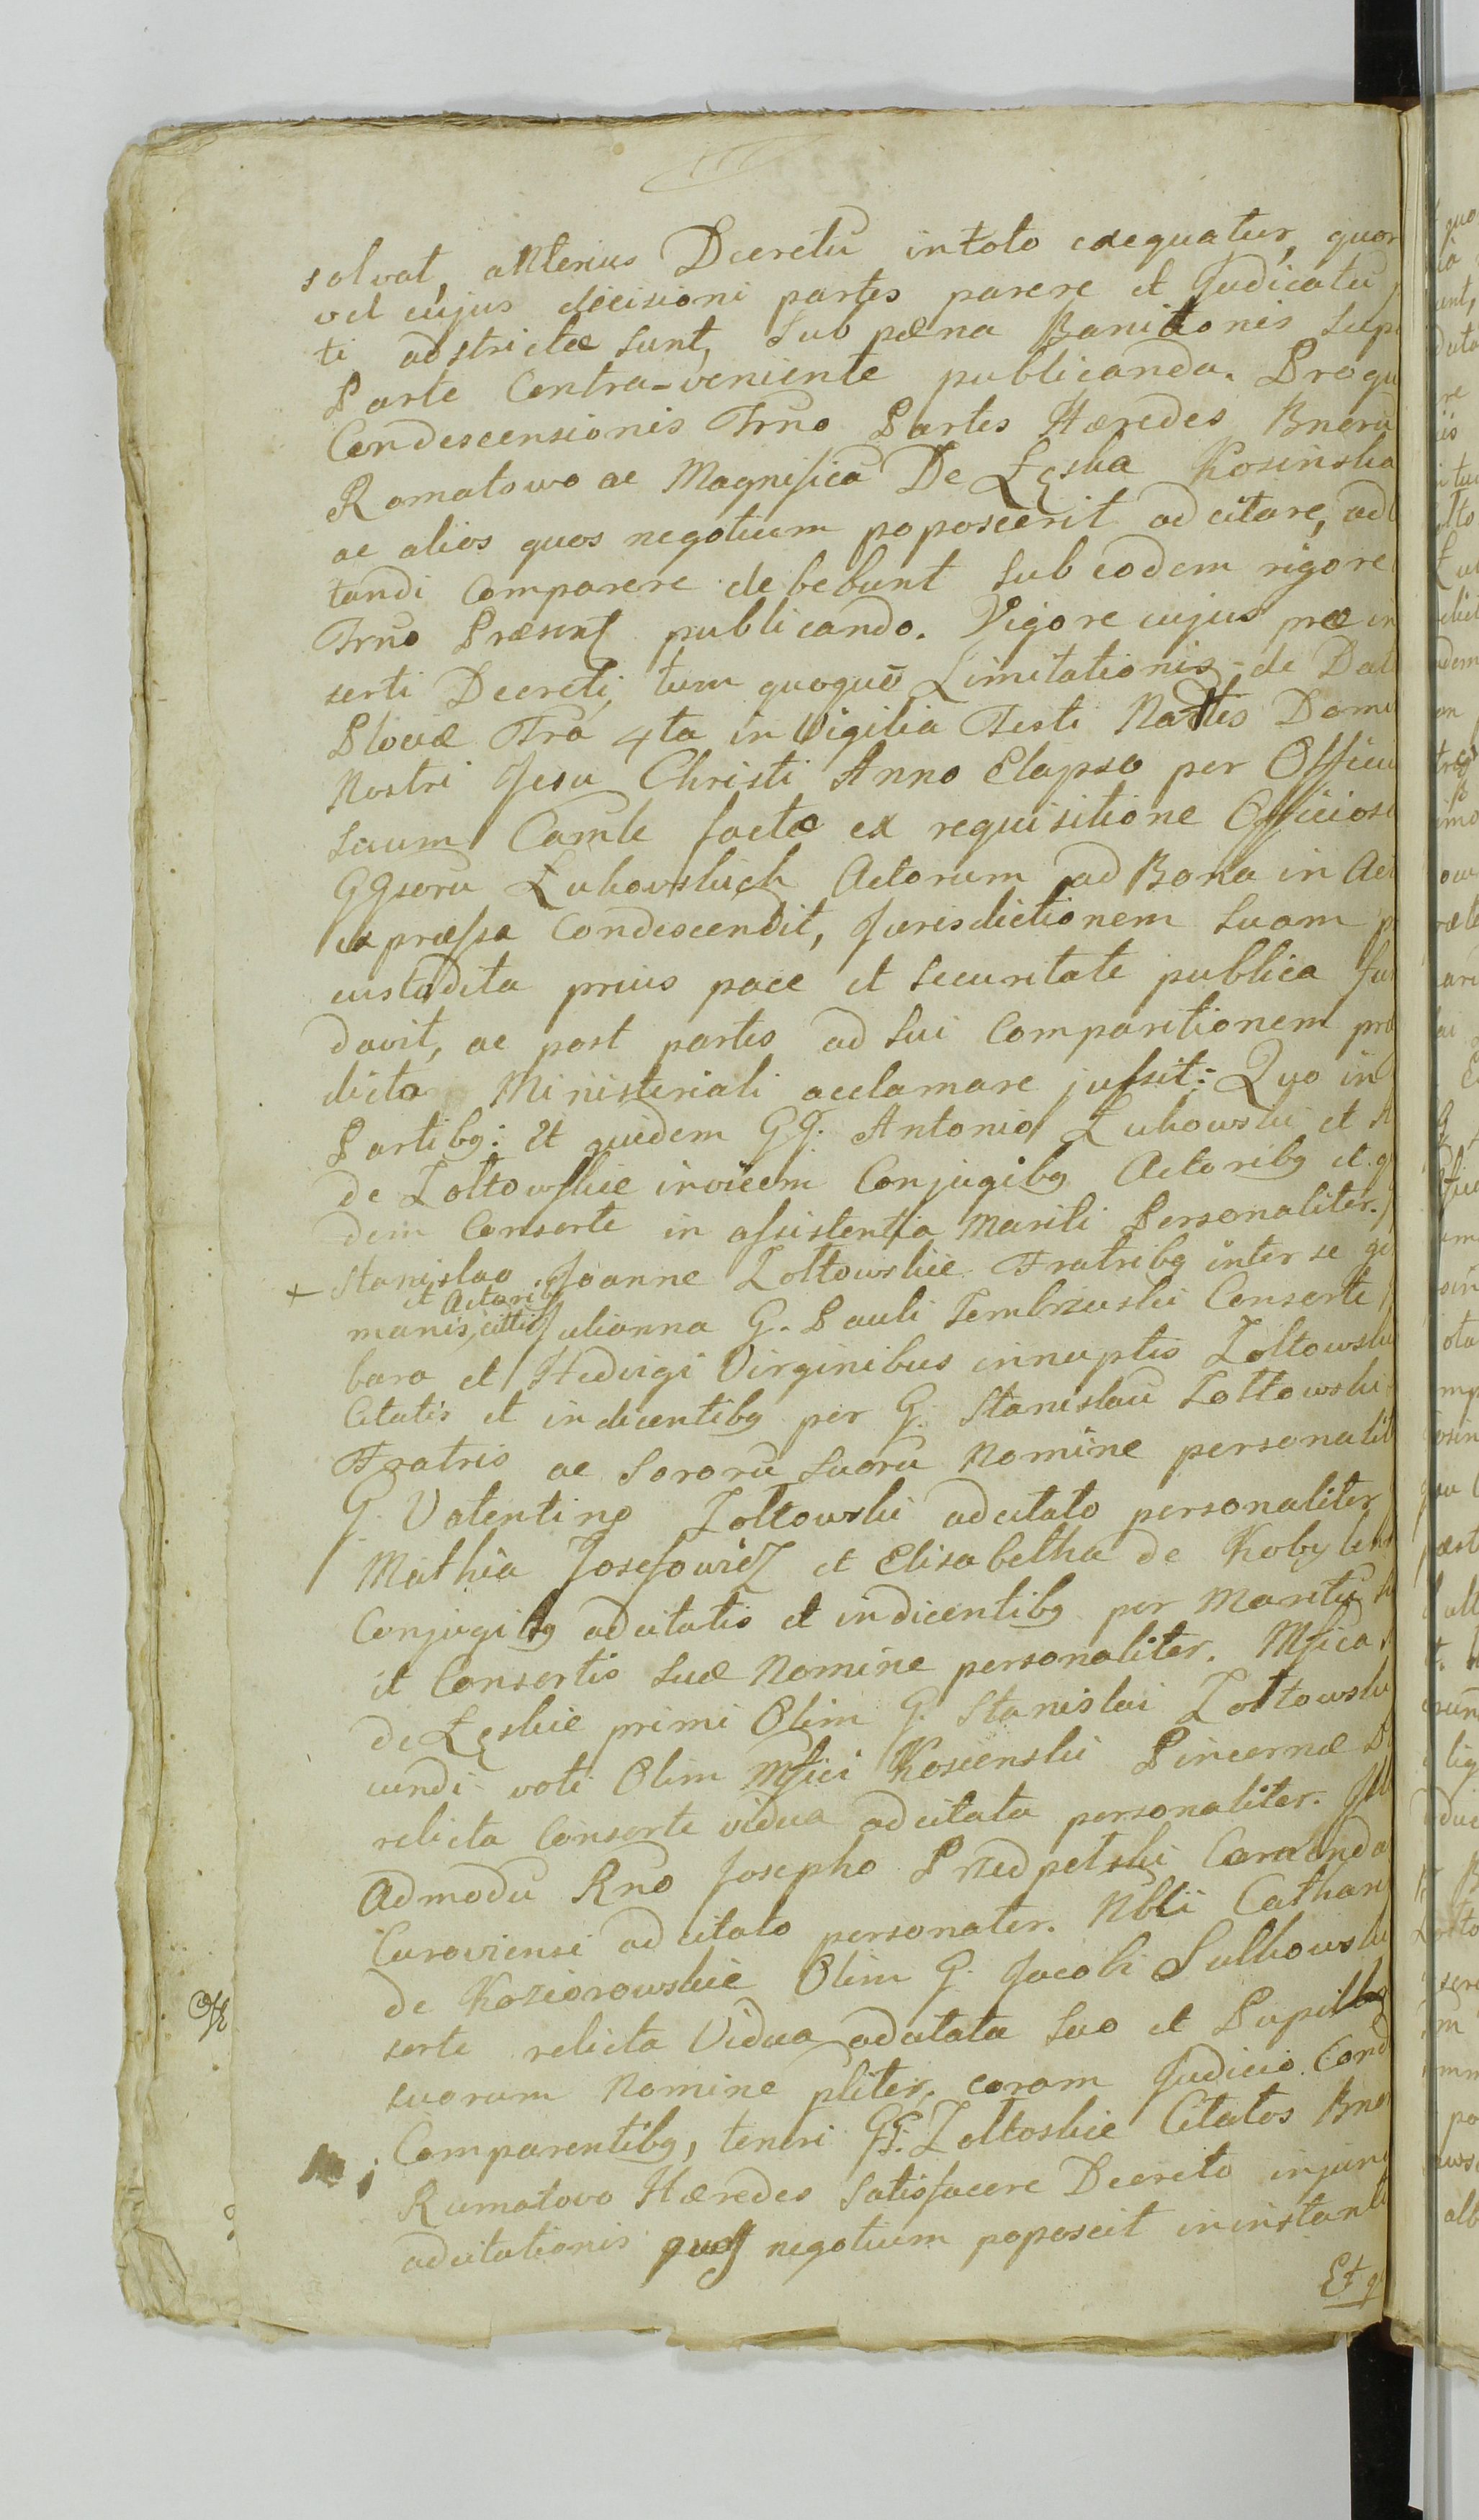 solvat, alterius Decretũ in toto exequatur, quor
vel cujus decisioni partes parere et Judicatũ
ti adstrictæ sunt, sub pæna Banitionis sup
Parte Contra-veniente publicanda. Pro qu
Condescensionis Trno Partes Hæredes Bnorũ
Romatowo ac Magnificã De Łęska Kosinska
ac alios quos negotium poposcerit adcitare, ad
tandi Comparere debebunt sub eodem rigore
Trno Præsenꝭ publicando. Vigore cujus præ in
serti Decreti, tum quoquē Limitationis de Dat
Plociæ Fra 4ta in Vigilia Festi Nattis Domi
Nostri Jesu Christi Anno Elapso per Officiu
suum Camle factæ ex requisitione Officiosi
GGsorũ Łukowskich Actorum ad Bona in Act
expressa Condescendit, Jurisdictionem Suam p
custodita prius pace et securitate publica fun
davit, ac post partes ad sui Comparitionem præ
dicto Ministeriali acclamare jussit: Quo in
Partibg: Et quidem GG. Antonio Łukowski et A
de Zołtowskie invicem Conjugibg Actoribg et q
dem Consorte in assistentia Mariti Personaliter.
+ Stanislao Joanne Zołtowskie Fratribg inter se ger
et Actoribg
manis, cittis Julianna G. Pauli Zembrzuski Consorte
bara et Hedvigi Virginibus innuptis Zołtowski
Citatis et indicentibg per G. Stanislaũ Zołtowski
Fratris ac Sororũ suorũ Nomine personalit
G. Valentino Zołtowski adcitato personaliter
Mathia Josefowicz et Elisabetha de Kobylins
Conjugibg adcitatis et indicentibg per Maritũ s
et Consortis suæ Nomine personaliter. Mfica
de Łęskie primi Olim G. Stanislai Zołtowski
cundi voti Olim Mfici Kosienski Pincernæ
relicta Consorte vidua adcitata personaliter. Ill
Admodũ Rno Josepho Przedpełski Comenda
Curoviensi adcitato personater. Nbli Cathar
de Koziorowskie Olim G. Jacobi Sulkowski
sorte relicta Vidua adcitata suo et Pupillor
suorum Nomine pliter, coram Judicio Cond
Comparentibg, teneri GG. Zołtoskie Citatos Bno
Rumatovo Hæredes Satisfacere Decreto injun
adcitationis quos negotium poposcit in instanti
Et q